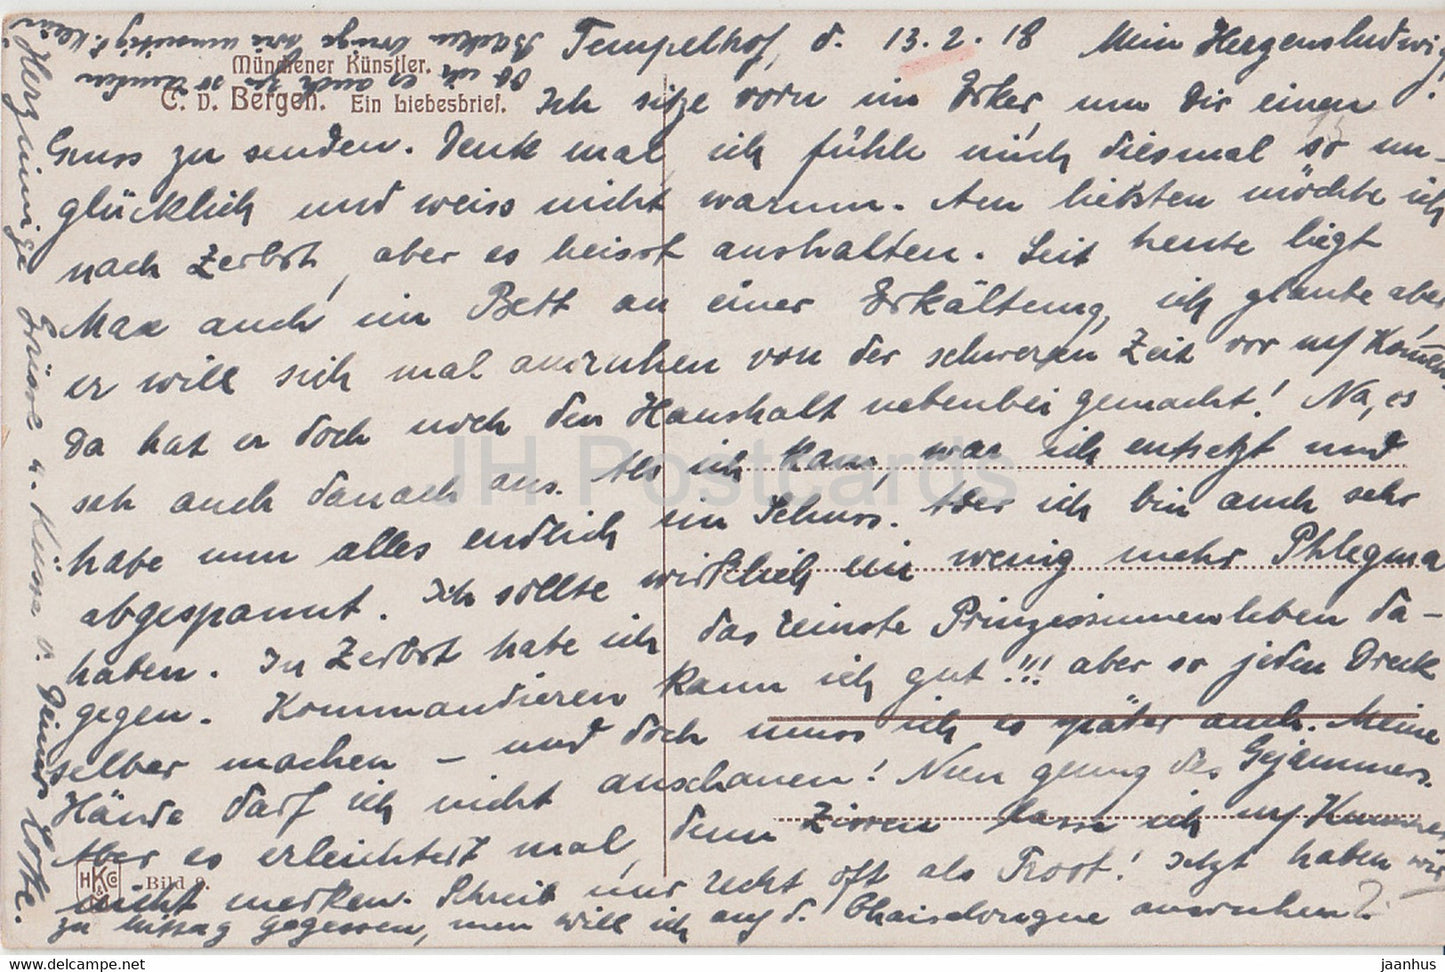 Tempelhof, d. 13.2.18 Mein Herzensludwig!
Münchener Künstler.
C. v. Bergen. Ein Liebesbrief.
Ich sitze vorn im Erker, um Dir einen
Gruss zu senden. Denk mal, ich fühle mich diesmal so un-
glücklich und weiss nicht warum. Am liebsten möchte ich
nach Zerbst, aber es heisst aushalten. Seit heute liegt
Max auch im Bett an einer Erkältung, ich glaube aber,
er will sich mal ausruhen von der schweren Zeit vor
Da hat er doch noch den Haushalt nebenbei gemacht! Na, es
sah auch danach aus. Als ich kam, war ich entsetzt und
habe nun alles endlich im Schuss. Aber ich bin auch sehr
abgespannt. Ich sollte wirklich ein wenig mehr Phlegma
haben. In Zerbst habe ich das reinste Prinzessinnenleben da-
gegen. Kommandieren kann ich gut!!! aber so jeden Dreck
selber machen – und doch muss ich es später auch. Meine
Hände darf ich nicht anschauen! Nun genug des Gejammers.
Aber es erleichtert mal, denn lasse ich
nicht merken. Schreib nur recht oft als Trost! Jetzt haben wir
zu Mittag gegessen, nun will ich auf d. Chaiselongue ausruhen.
Ob ich es auch so finden
Herzinnige Grüsse u. Küsse v. Deiner Lotte.
HK&Co
Bild 9.
JH Postcards
www.delcampe.net
jaanhus